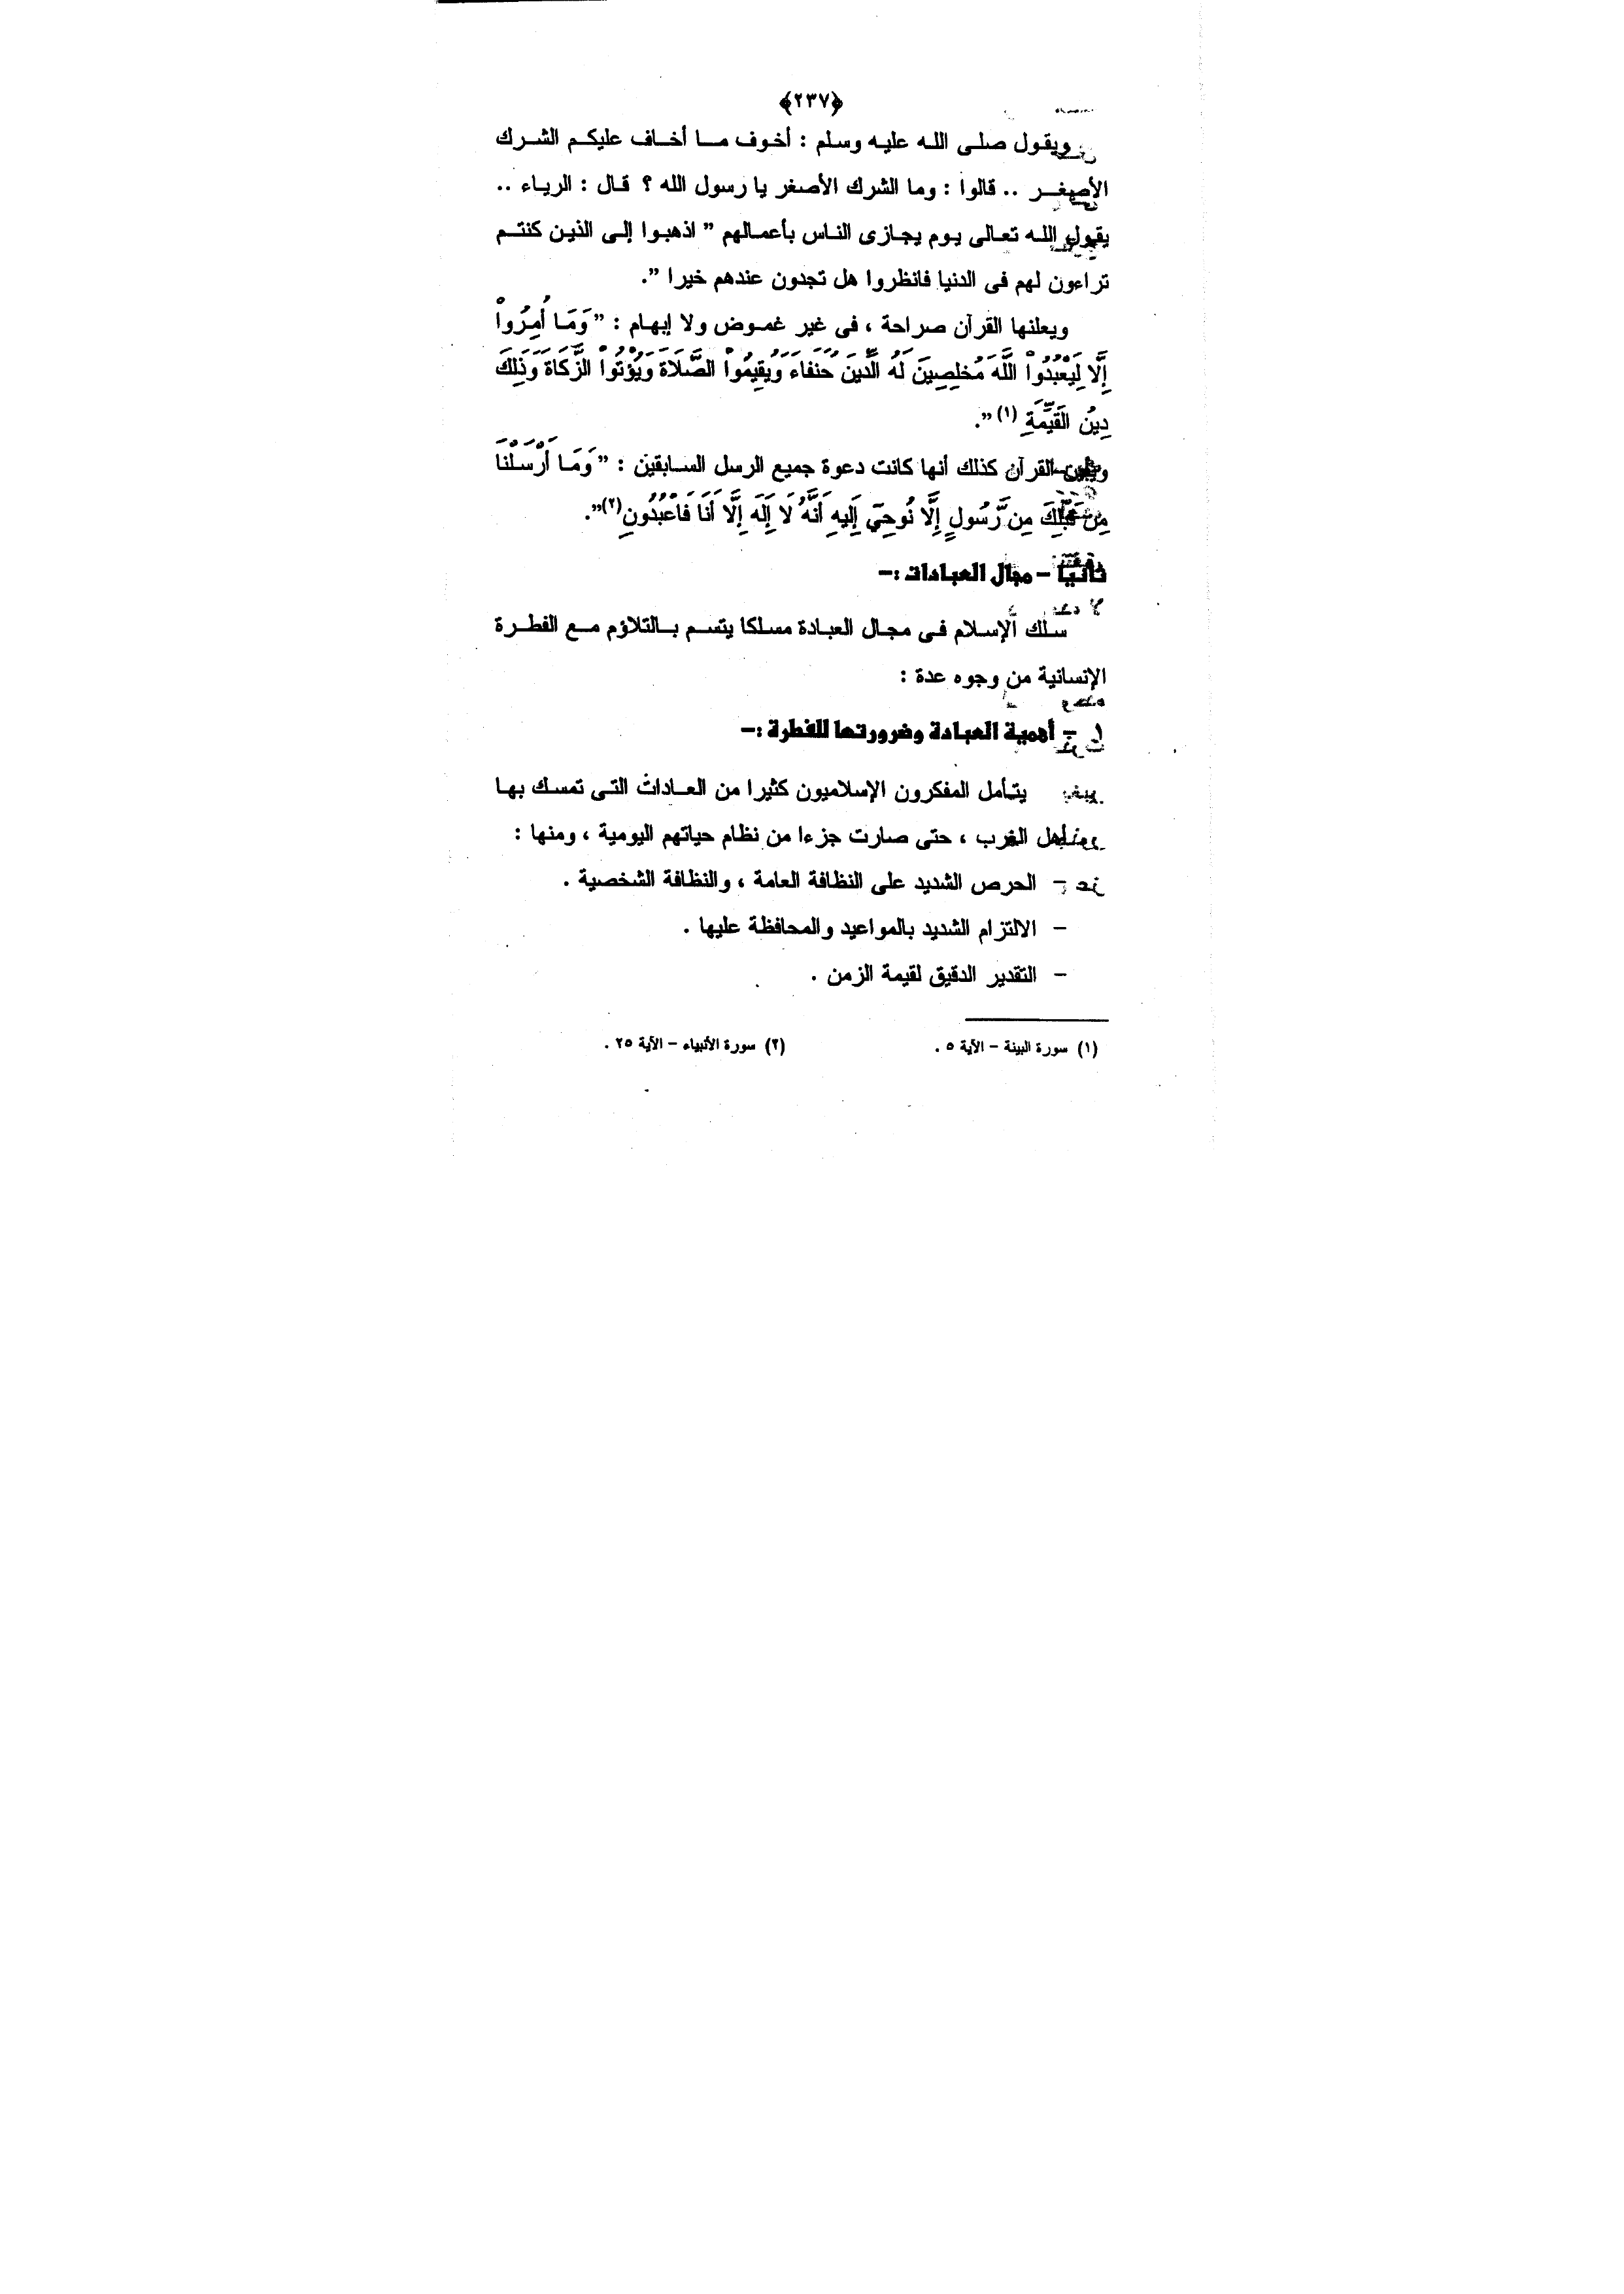 ﴿٢٣٧﴾
ويقول صلى الله عليه وسلم : أخوف ما أخاف عليكم الشرك
الأصغر .. قالوا : وما الشرك الأصغر يا رسول الله ؟ قال : الرياء ..
يقول الله تعالى يوم يجازى الناس بأعمالهم " اذهبوا إلى الذين كنتم
تراءون لهم فى الدنيا فانظروا هل تجدون عندهم خيرا ".
ويعلنها القرآن صراحة ، فى غير غموض ولا إبهام : " وَمَا أُمِرُواْ
إِلَّا لِيَعْبُدُواْ اللَّهَ مُخْلِصِينَ لَهُ الدِّينَ حُنَفَاءَ وَيُقِيمُواْ الصَّلَاةَ وَيُؤْتُواْ الزَّكَاةَ وَذَلِكَ
دِينُ الْقَيِّمَةِ (١) ".
القرآن كذلك أنها كانت دعوة جميع الرسل السابقين : " وَمَا أَرْسَلْنَا
مِن قَبْلِكَ مِن رَّسُولٍ إِلَّا نُوحِي إِلَيْهِ أَنَّهُ لَا إِلَهَ إِلَّا أَنَا فَاعْبُدُونِ(٢)".
ثانيا – مجال العبادات :–
سلك الإسلام فى مجال العبادة مسلكا يتسم بالتلاؤم مع الفطرة
الإنسانية من وجوه عدة :
١ – أهمية العبادة وضرورتها للفطرة :–
يتأمل المفكرون الإسلاميون كثيرا من العادات التى تمسك بها
أهل الغرب ، حتى صارت جزءا من نظام حياتهم اليومية ، ومنها :
– الحرص الشديد على النظافة العامة ، والنظافة الشخصية .
– الالتزام الشديد بالمواعيد والمحافظة عليها .
– التقدير الدقيق لقيمة الزمن .
(١) سورة البينة – الآية ٥ . (٢) سورة الأنبياء – الآية ٢٥ .